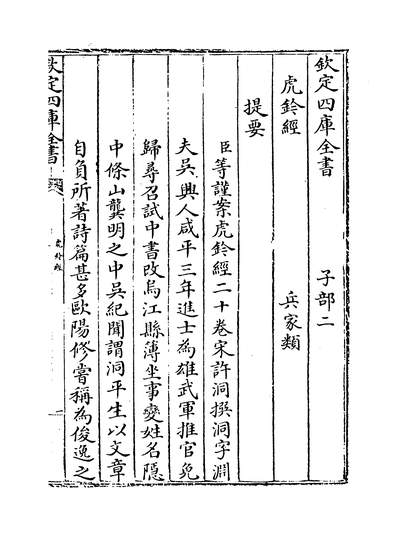 欽定四庫全書　子部二
虎鈐經　兵家類
提要
臣等謹案虎鈐經二十卷宋許洞撰洞字淵
夫吳興人咸平三年進士為雄武軍推官免
歸尋召試中書改烏江縣簿坐事變姓名隱
中條山龔明之中吳紀聞謂洞平生以文章
自負所著詩篇甚多歐陽修嘗稱為俊逸之
欽定四庫全書
虎鈐經